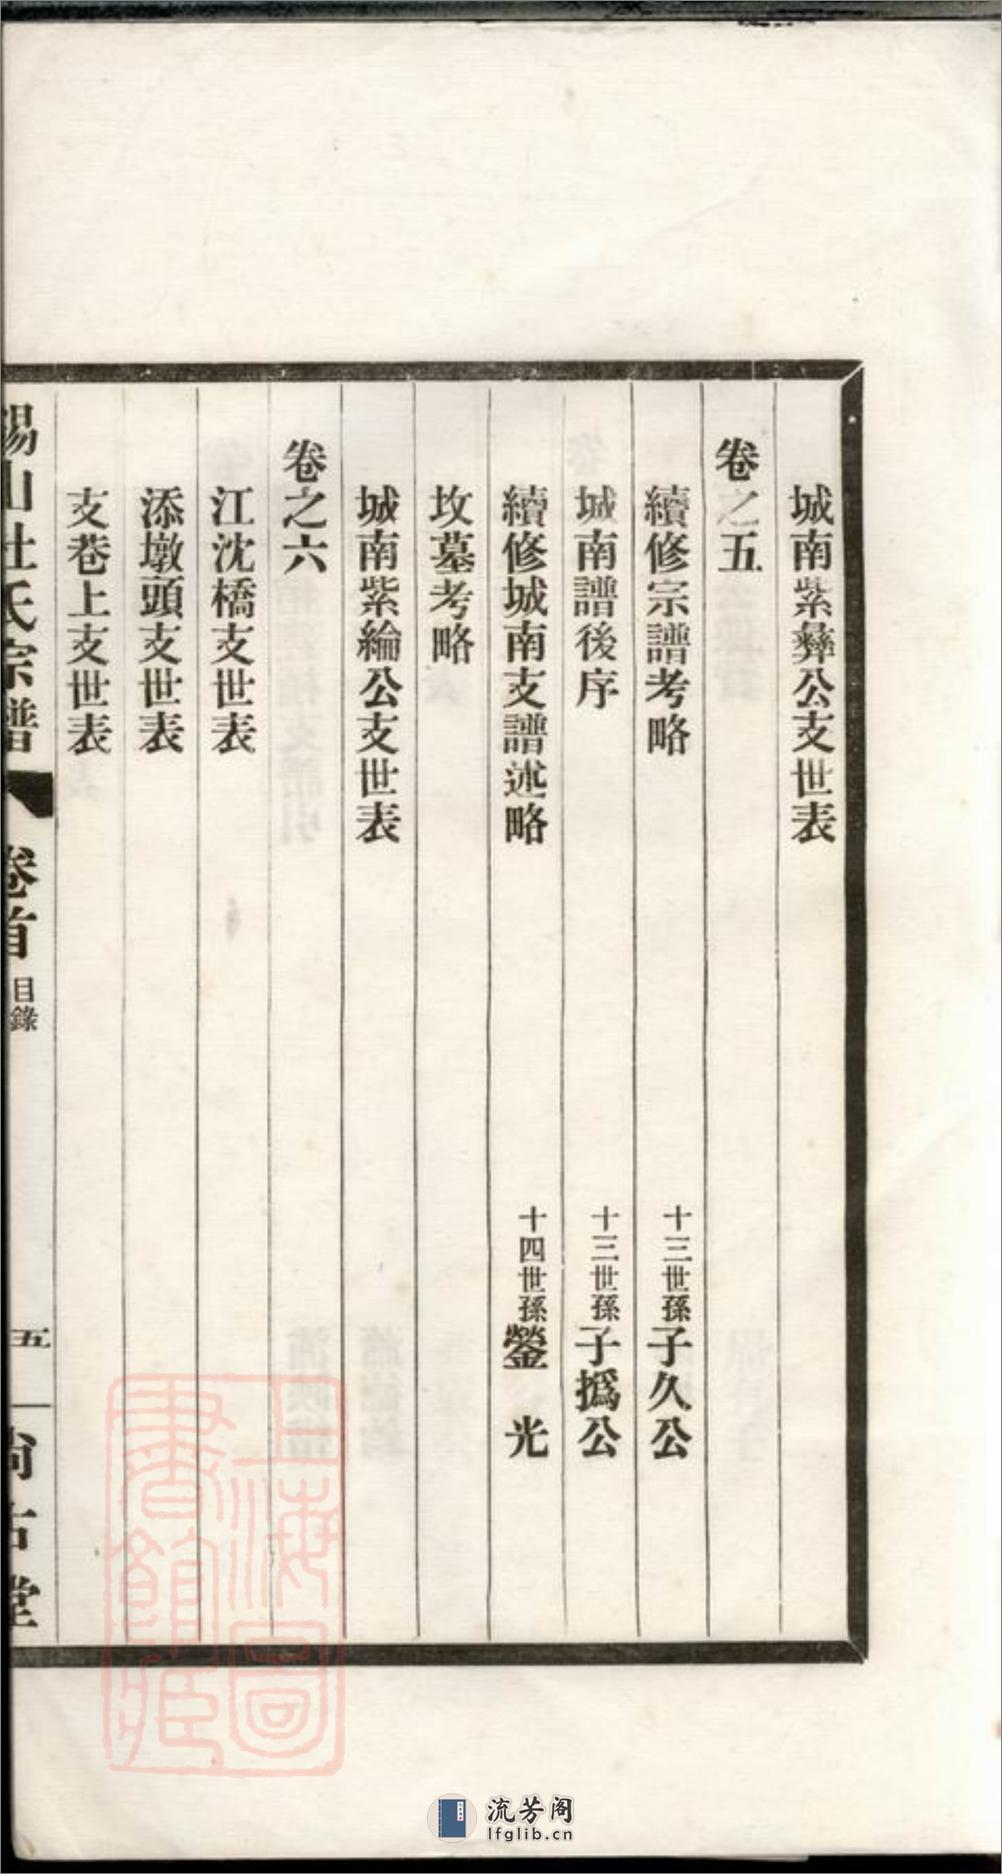 城南紫彝公支世表
卷之五
續修宗譜考略 十三世孫子久公
城南譜後序 十三世孫子撝公
續修城南支譜述略 十四世孫鎣光
坟墓考略
城南紫綸公支世表
卷之六
江沈橋支世表
添墩頭支世表
支巷上支世表
錫山杜氏宗譜 卷首 目錄 五 尚古堂
上海圖
書館藏
流芳阁
lfglib.cn